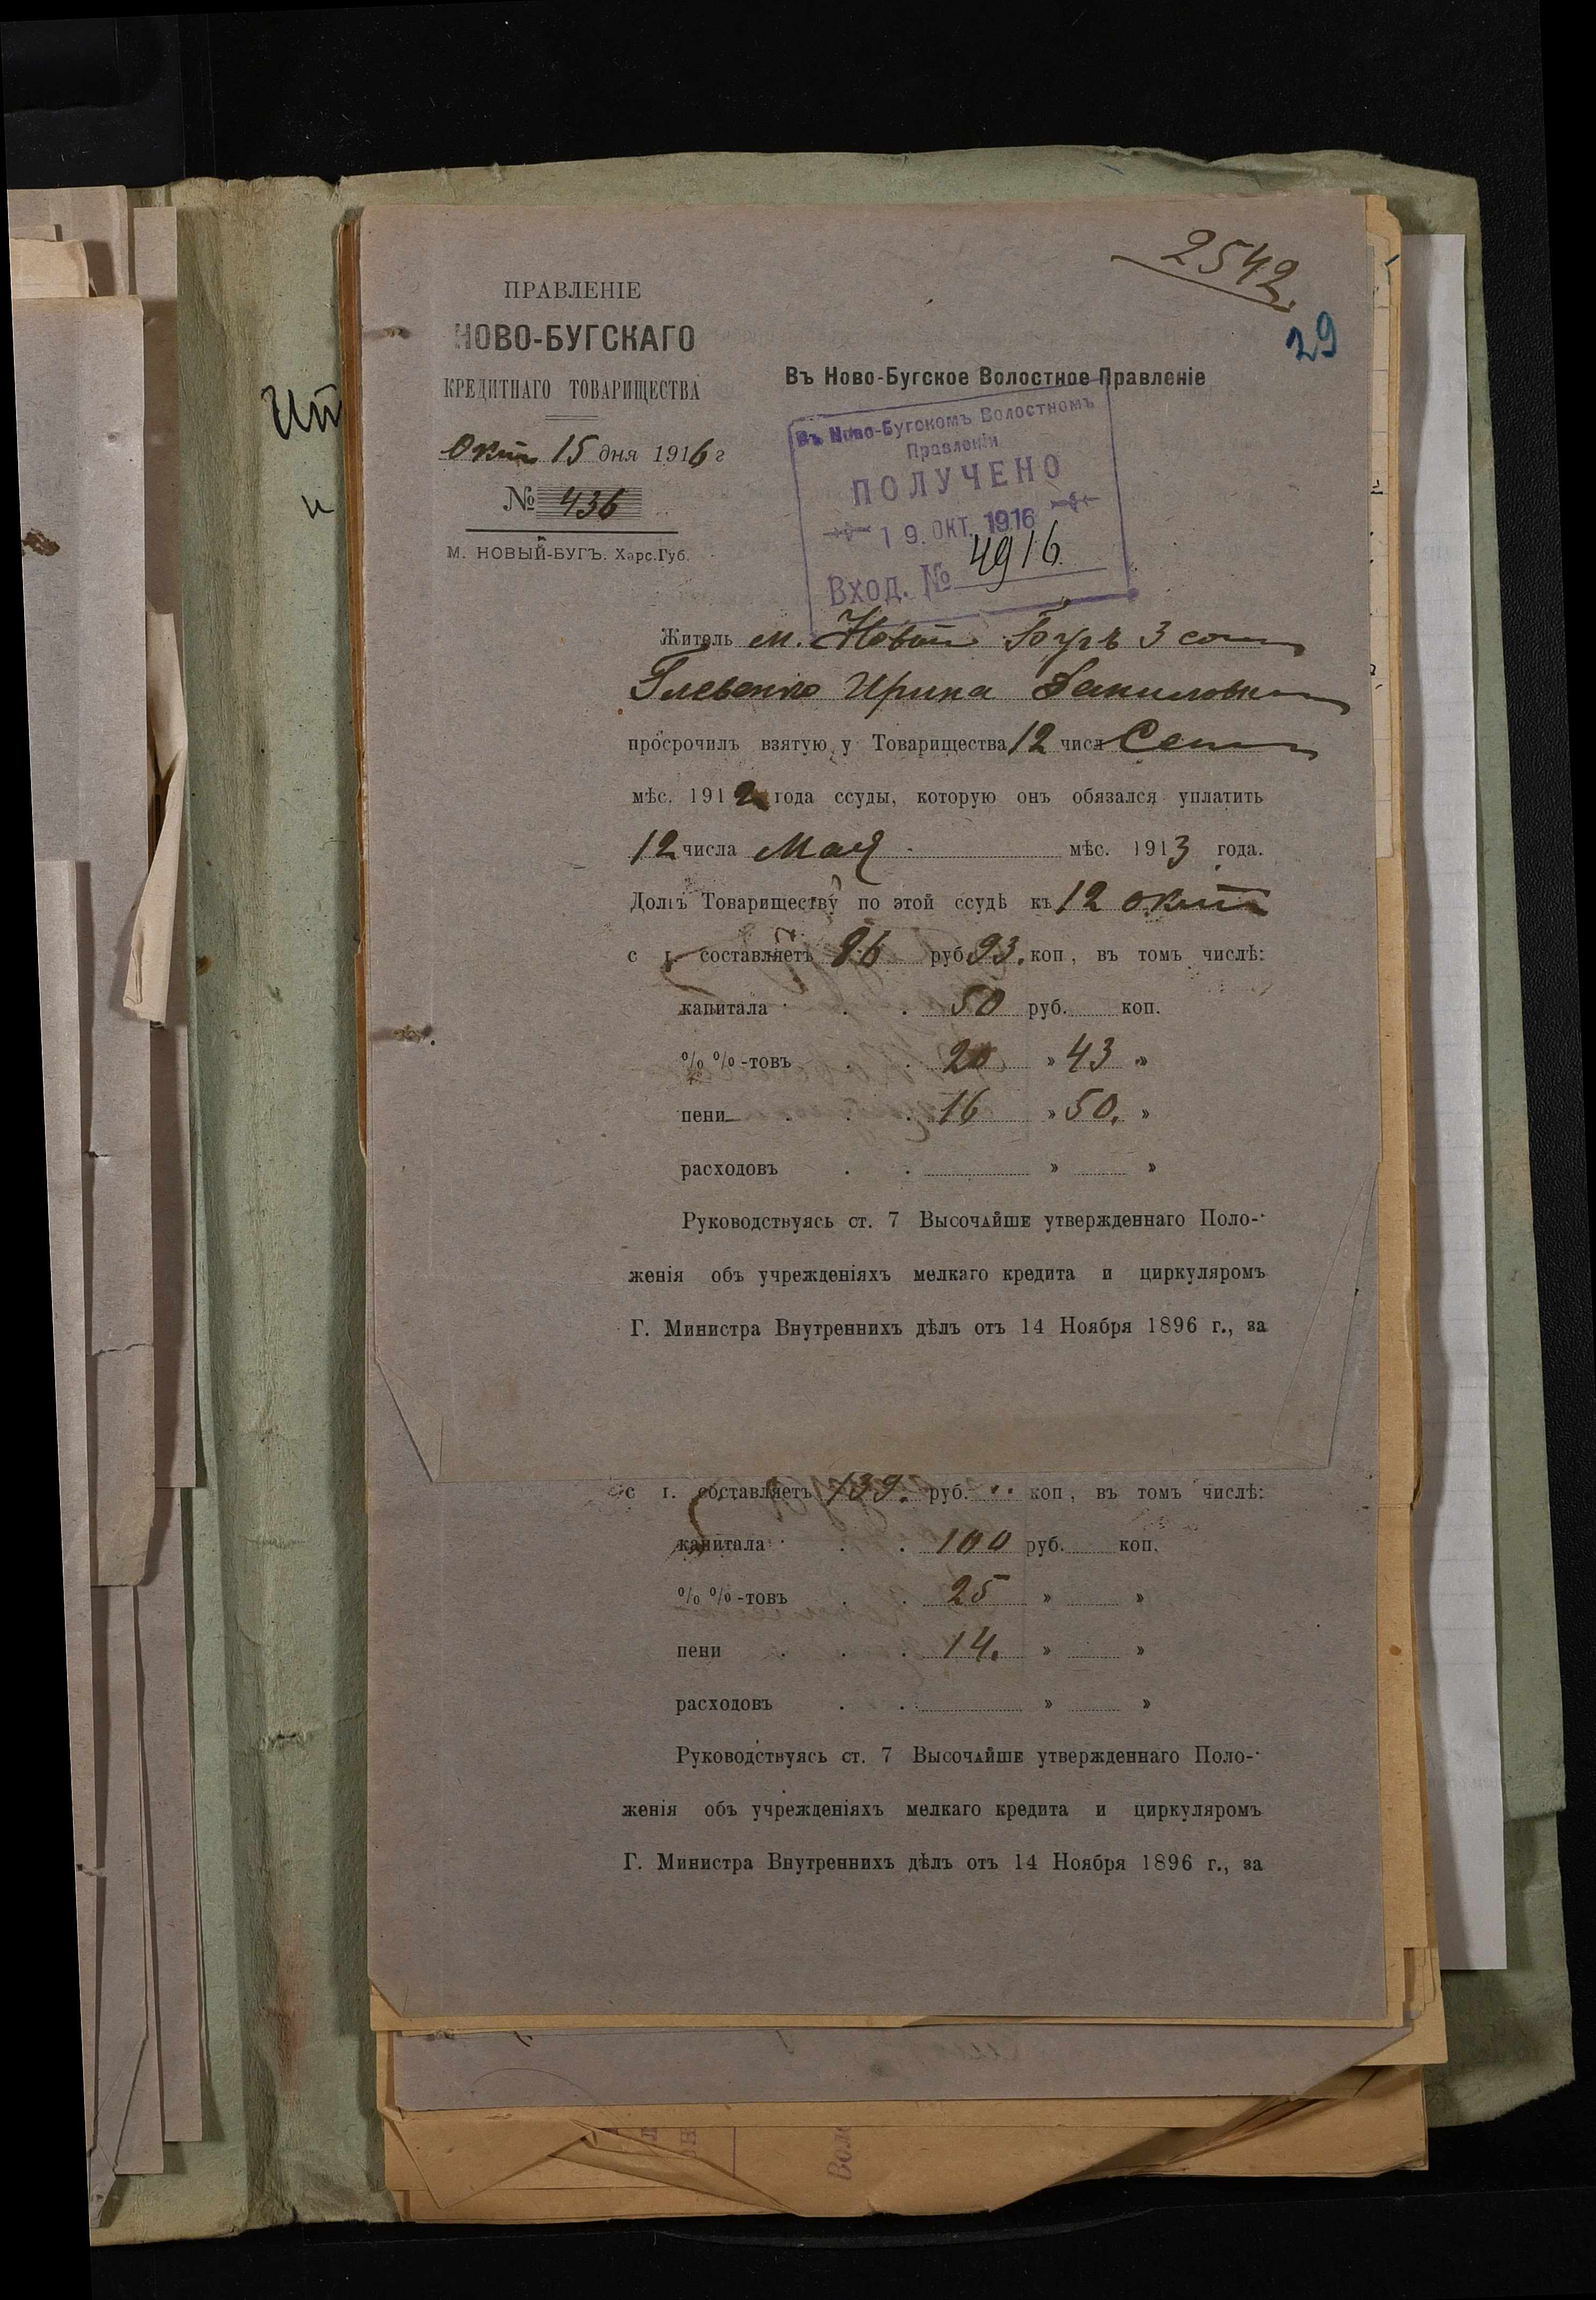 2542
29
ПРАВЛЕНІЕ
НОВО-БУГСКАГО
КРЕДИТНАГО ТОВАРИЩЕСТВА
Окт 15 дня 1916 г
№ 436
М. НОВЫЙ-БУГЪ. Харс.Губ.
Въ Ново-Бугское Волостное Правленіе
Въ Ново-Бугскомъ Волостномъ
Правленіи
ПОЛУЧЕНО
19. ОКТ. 1916
Вход. № 4916
Житель м. Новый Бугъ 3 сот
Ирина Даниловна
просрочилъ взятую у Товарищества 12 числ Сент
мѣс. 1912 года ссуды, которую онъ обязался уплатить
12 числа Мая мѣс. 1913 года.
Долгъ Товариществу по этой ссудѣ къ 12 окт
с г. составляетъ 86 руб. 93. коп, въ томъ числѣ:
капитала . . 50 руб. коп.
% %-товъ . . 20 » 43 »
пени . . . 16 » 50. »
расходовъ . . » »
Руководствуясь ст. 7 Высочайше утвержденнаго Поло-
женія объ учрежденіяхъ мелкаго кредита и циркуляромъ
Г. Министра Внутреннихъ дѣлъ отъ 14 Ноября 1896 г., за
с г. составляетъ 139. руб. .. коп, въ томъ числѣ:
капитала . . 100 руб. коп.
% %-товъ . . 25 » »
пени . . . 14. » »
расходовъ . . » »
Руководствуясь ст. 7 Высочайше утвержденнаго Поло-
женія объ учрежденіяхъ мелкаго кредита и циркуляромъ
Г. Министра Внутреннихъ дѣлъ отъ 14 Ноября 1896 г., за